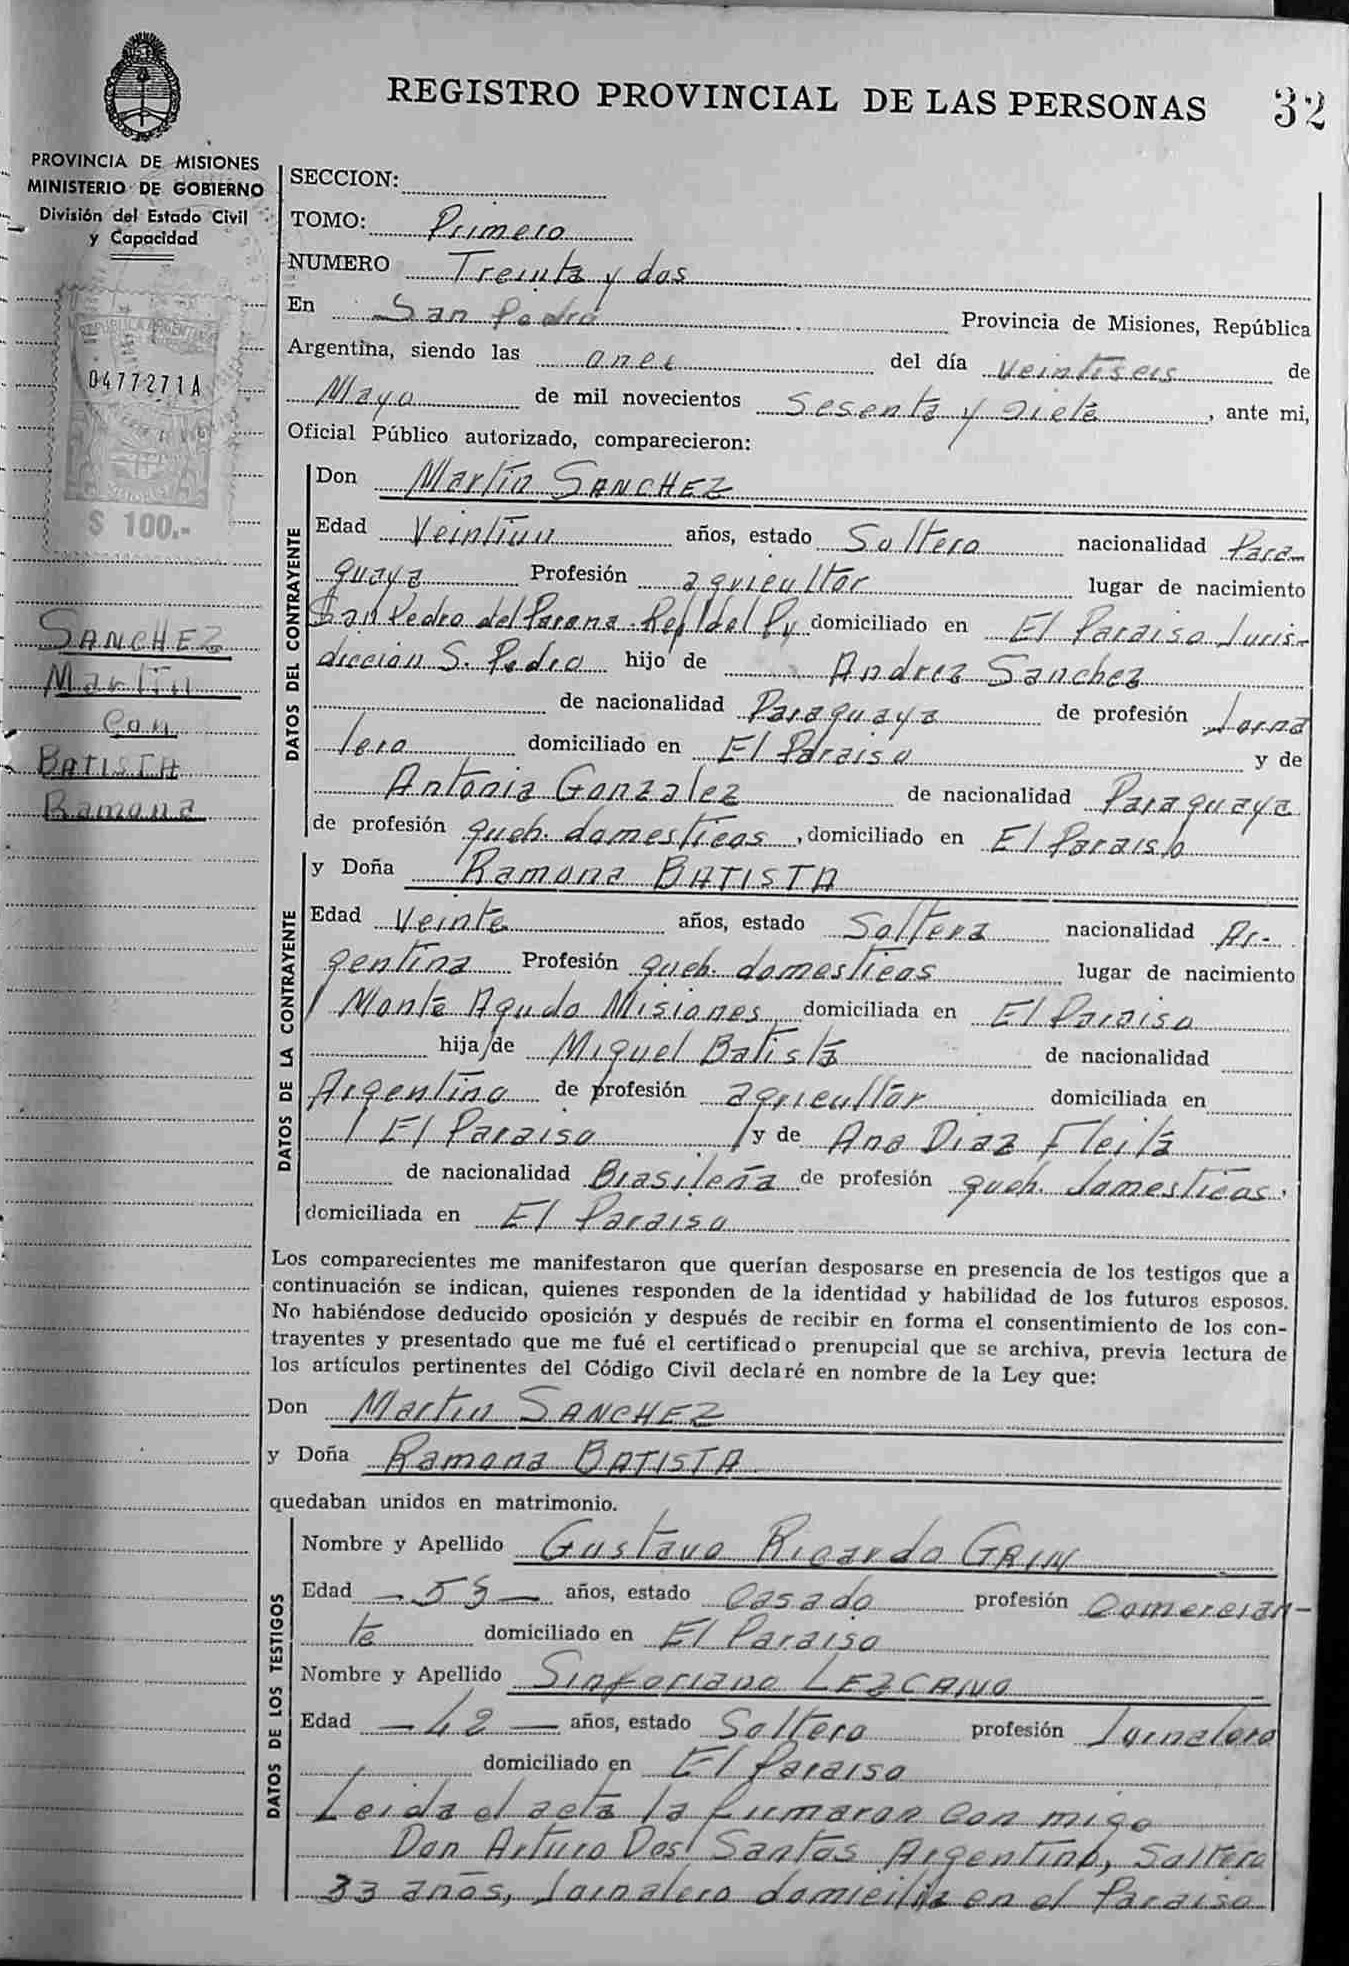 REGISTRO PROVINCIAL DE LAS PERSONAS 32
PROVINCIA DE MISIONES
MINISTERIO DE GOBIERNO
División del Estado Civil
y Capacidad
REPUBLICA ARGENTINA
0477271A
MISIONES
$ 100.-
SANCHEZ
Martin
Con
BATISTA
Ramona
SECCION:
TOMO: Primero
NUMERO Treinta y dos
En San Pedro Provincia de Misiones, República
Argentina, siendo las once del día veintiseis de
Mayo de mil novecientos Sesenta y siete, ante mi,
Oficial Público autorizado, comparecieron:
DATOS DEL CONTRAYENTE
Don Martín SANCHEZ
Edad Veintiun años, estado Soltero nacionalidad Para-
guaya Profesión agricultor lugar de nacimiento
San Pedro del Parana. Rep. del Py domiciliado en El Paraiso Juris-
diccion S. Pedro hijo de Andrez Sanchez
de nacionalidad Paraguaya de profesión Jorna
lero domiciliado en El Paraiso y de
Antonia Gonzalez de nacionalidad Paraguaya
de profesión queh. domesticos, domiciliado en El Paraiso
DATOS DE LA CONTRAYENTE
y Doña Ramona BATISTA
Edad Veinte años, estado Soltera nacionalidad Ar-
gentina Profesión queh. domesticos lugar de nacimiento
Monte Agudo Misiones domiciliada en El Paraiso
hija de Miguel Batista de nacionalidad
Argentino de profesión agricultor domiciliada en
El Paraiso y de Ana Diaz Fleita
de nacionalidad Brasileña de profesión queh. domesticos.
domiciliada en El Paraiso
Los comparecientes me manifestaron que querían desposarse en presencia de los testigos que a
continuación se indican, quienes responden de la identidad y habilidad de los futuros esposos.
No habiéndose deducido oposición y después de recibir en forma el consentimiento de los con-
trayentes y presentado que me fué el certificado prenupcial que se archiva, previa lectura de
los artículos pertinentes del Código Civil declaré en nombre de la Ley que:
Don Martin SANCHEZ
y Doña Ramona BATISTA
quedaban unidos en matrimonio.
DATOS DE LOS TESTIGOS
Nombre y Apellido Gustavo Ricardo GRIN
Edad años, estado Casado profesión Comercian-
te domiciliado en El Paraiso
Nombre y Apellido Sinforiano LEZCANO
Edad - 42 - años, estado Soltero profesión Jornalero
domiciliado en El Paraiso
Leida el acta la firmaron con migo
Don Arturo Dos Santos Argentino, Soltero
33 años, Jornalero domicilia en el Paraiso